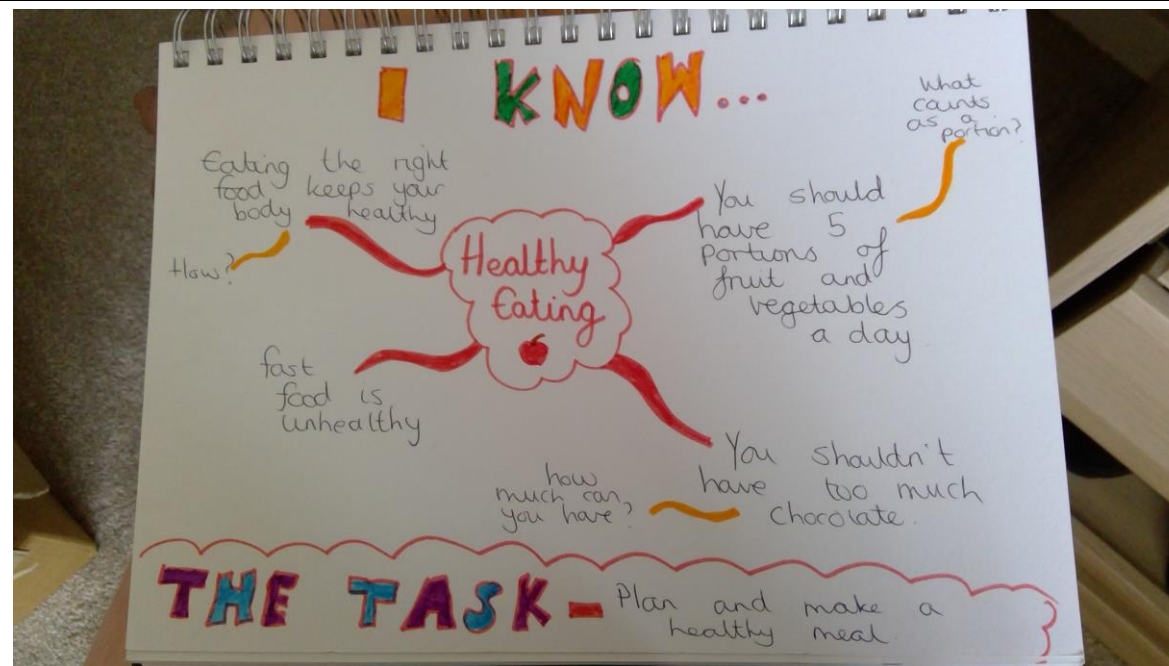 I KNOW...
Eating the right
food keeps your
body healthy
How?
Healthy
Eating
You should
have 5
portions of
fruit and
vegetables
a day
What
counts
as a
portion?
fast
food is
unhealthy
You shouldn't
have too much
chocolate.
how
much can
you have?
THE TASK - Plan and make a
healthy meal.